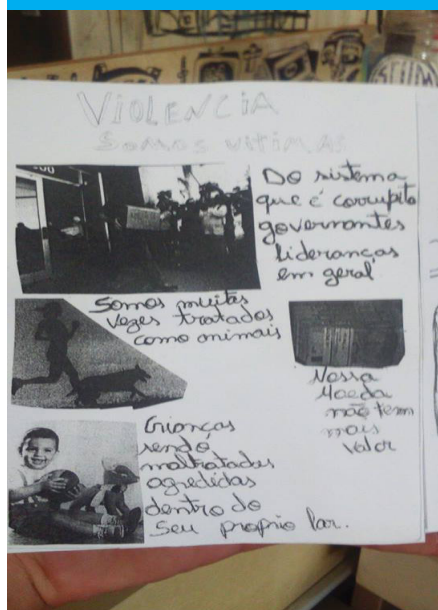 VIOLENCIA
Somos vitimas
Do sistema
que é corrupito
governantes
lideranças
em geral
Somos muitas
vezes tratados
como animais
Nossa
Moeda
não tem
mais
valor
Crianças
sendo
maltratadas
agredidas
dentro do
seu proprio lar.